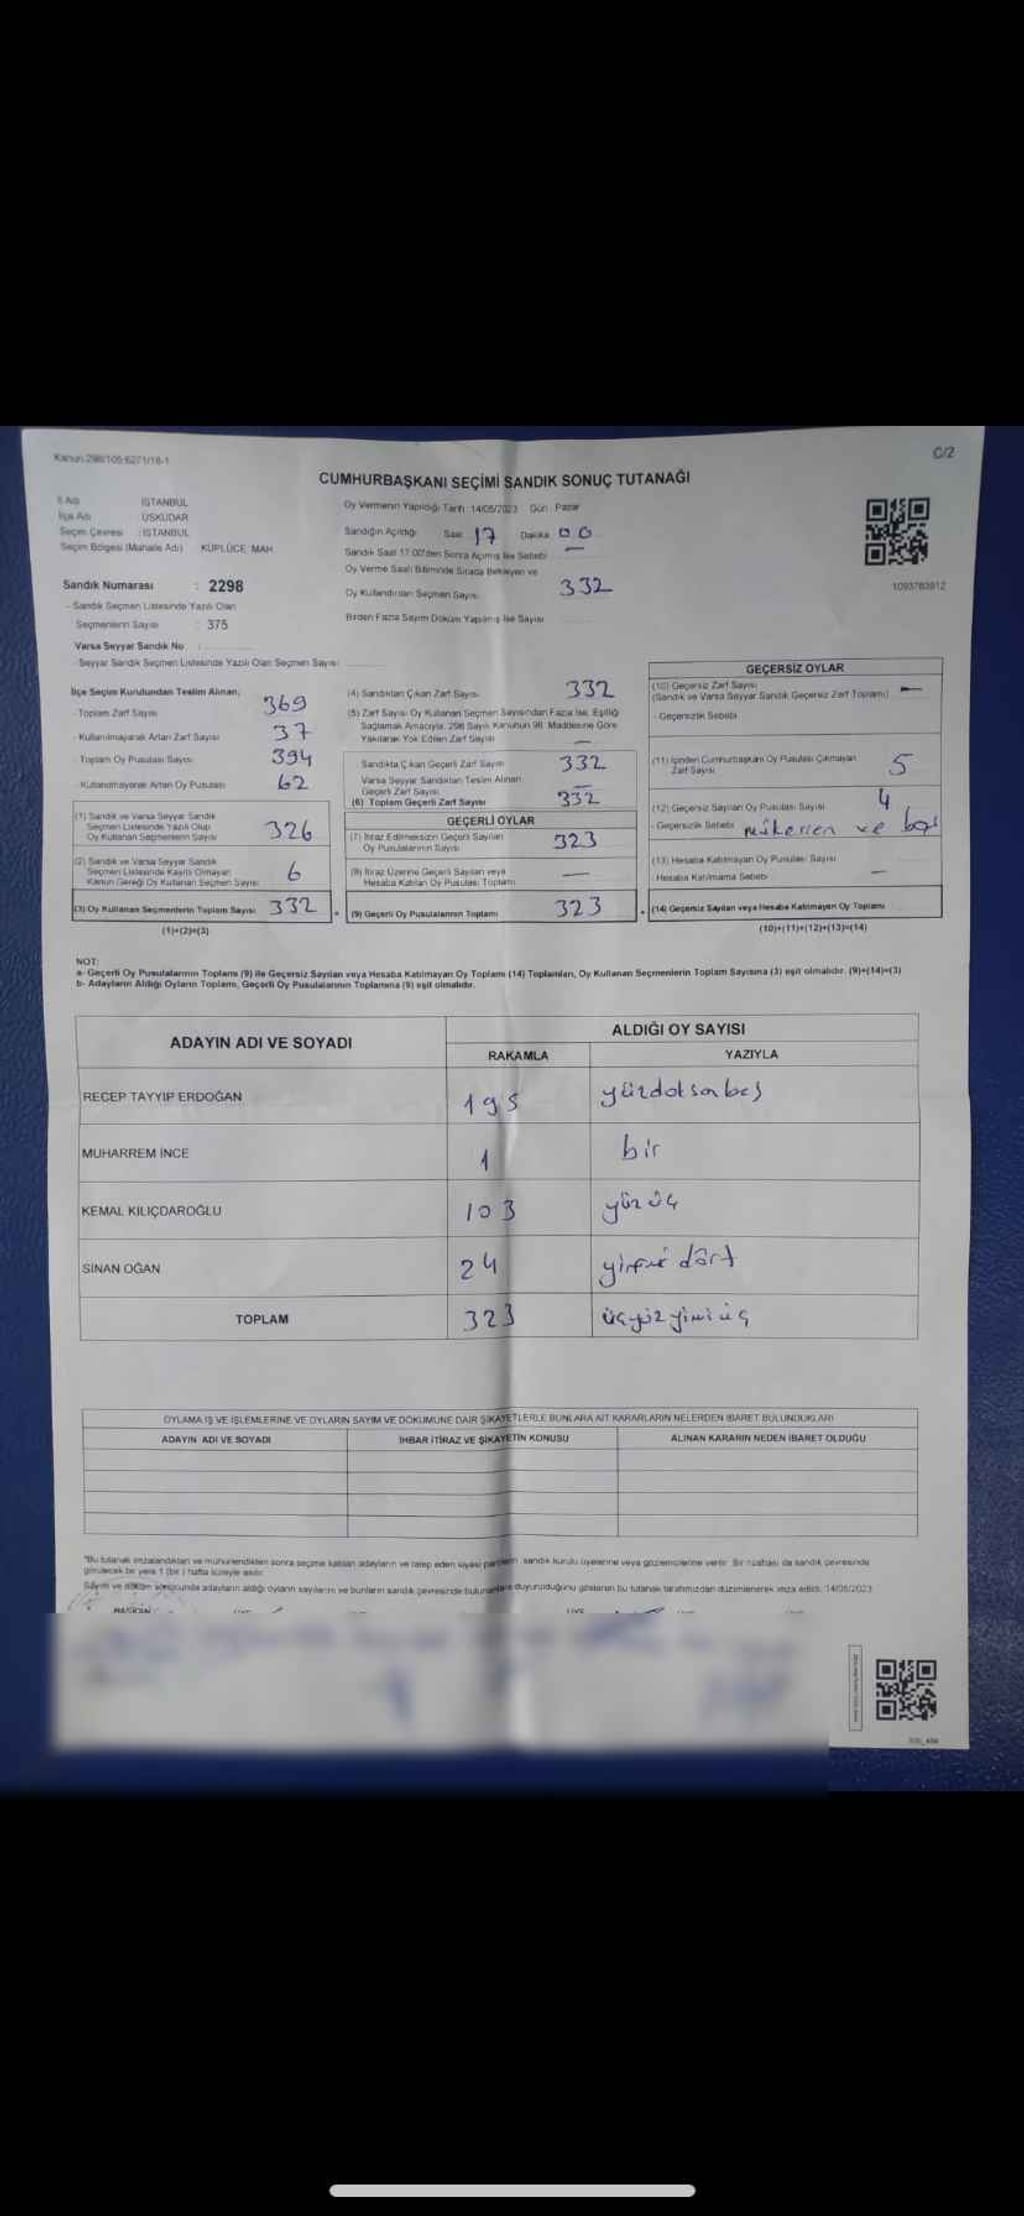 Kanun:298/105-6271/16-1
C/2
CUMHURBAŞKANI SEÇİMİ SANDIK SONUÇ TUTANAĞI
İl Adı : İSTANBUL
İlçe Adı : ÜSKÜDAR
Seçim Çevresi : İSTANBUL
Seçim Bölgesi (Mahalle Adı) : KÜPLÜCE MAH.
Sandık Numarası : 2298
- Sandık Seçmen Listesinde Yazılı Olan
Seçmenlerin Sayısı : 375
Varsa Seyyar Sandık No :
- Seyyar Sandık Seçmen Listesinde Yazılı Olan Seçmen Sayısı
Oy Vermenin Yapıldığı Tarih : 14/05/2023 Gün : Pazar
Sandığın Açıldığı Saat 17 Dakika 00
Sandık Saat 17:00'den Sonra Açılmış İse Sebebi —
Oy Verme Saati Bitiminde Sırada Bekleyen ve
Oy Kullandırılan Seçmen Sayısı 332
Birden Fazla Sayım Döküm Yapılmış İse Sayısı
1093783912
İlçe Seçim Kurulundan Teslim Alınan,
- Toplam Zarf Sayısı 369
- Kullanılmayarak Artan Zarf Sayısı 37
- Toplam Oy Pusulası Sayısı 394
- Kullanılmayarak Artan Oy Pusulası 62
(1) Sandık ve Varsa Seyyar Sandık
Seçmen Listesinde Yazılı Olup
Oy Kullanan Seçmenlerin Sayısı 326
(2) Sandık ve Varsa Seyyar Sandık
Seçmen Listesinde Kayıtlı Olmayan
Kanun Gereği Oy Kullanan Seçmen Sayısı 6
(3) Oy Kullanan Seçmenlerin Toplam Sayısı 332
(1)+(2)=(3)
(4) Sandıktan Çıkan Zarf Sayısı 332
(5) Zarf Sayısı Oy Kullanan Seçmen Sayısından Fazla İse, Eşitliği
Sağlamak Amacıyla, 298 Sayılı Kanunun 98. Maddesine Göre
Yakılarak Yok Edilen Zarf Sayısı —
Sandıkta Çıkan Geçerli Zarf Sayısı 332
Varsa Seyyar Sandıktan Teslim Alınan
Geçerli Zarf Sayısı —
(6) Toplam Geçerli Zarf Sayısı 332
GEÇERLİ OYLAR
(7) İtiraz Edilmeksizin Geçerli Sayılan
Oy Pusulalarının Sayısı 323
(8) İtiraz Üzerine Geçerli Sayılan veya
Hesaba Katılan Oy Pusulası Toplamı —
(9) Geçerli Oy Pusulalarının Toplamı 323
GEÇERSİZ OYLAR
(10) Geçersiz Zarf Sayısı
(Sandık ve Varsa Seyyar Sandık Geçersiz Zarf Toplamı) —
- Geçersizlik Sebebi
(11) İçinden Cumhurbaşkanı Oy Pusulası Çıkmayan
Zarf Sayısı 5
(12) Geçersiz Sayılan Oy Pusulası Sayısı 4
- Geçersizlik Sebebi ve boş
(13) Hesaba Katılmayan Oy Pusulası Sayısı
- Hesaba Katılmama Sebebi —
(14) Geçersiz Sayılan veya Hesaba Katılmayan Oy Toplamı
(10)+(11)+(12)+(13)=(14)
NOT:
a- Geçerli Oy Pusulalarının Toplamı (9) ile Geçersiz Sayılan veya Hesaba Katılmayan Oy Toplamı (14) Toplamları, Oy Kullanan Seçmenlerin Toplam Sayısına (3) eşit olmalıdır. (9)+(14)=(3)
b- Adayların Aldığı Oyların Toplamı, Geçerli Oy Pusulalarının Toplamına (9) eşit olmalıdır.
ADAYIN ADI VE SOYADI
ALDIĞI OY SAYISI
RAKAMLA YAZIYLA
RECEP TAYYİP ERDOĞAN 195 yüzdoksanbeş
MUHARREM İNCE 1 bir
KEMAL KILIÇDAROĞLU 103 yüz üç
SİNAN OĞAN 24 yirmi dört
TOPLAM 323 üçyüz yirmi üç
OYLAMA İŞ VE İŞLEMLERİNE VE OYLARIN SAYIM VE DÖKÜMÜNE DAİR ŞİKAYETLERLE BUNLARA AİT KARARLARIN NELERDEN İBARET BULUNDUKLARI
ADAYIN ADI VE SOYADI İHBAR İTİRAZ VE ŞİKAYETİN KONUSU ALINAN KARARIN NEDEN İBARET OLDUĞU
*Bu tutanak imzalandıktan ve mühürlendikten sonra seçime katılan adayların ve talep eden siyasi partilerin sandık kurulu üyelerine veya gözlemcilerine verilir. Bir nüshası da sandık çevresinde
görülecek bir yere 1 (bir) hafta süreyle asılır.
Sayım ve döküm sonucunda adayların aldığı oyların sayılarını ve bunların sandık çevresinde bulunanlara duyurulduğunu gösteren bu tutanak tarafımızdan düzenlenerek imza edildi. 14/05/2023
BAŞKAN ÜYE ÜYE